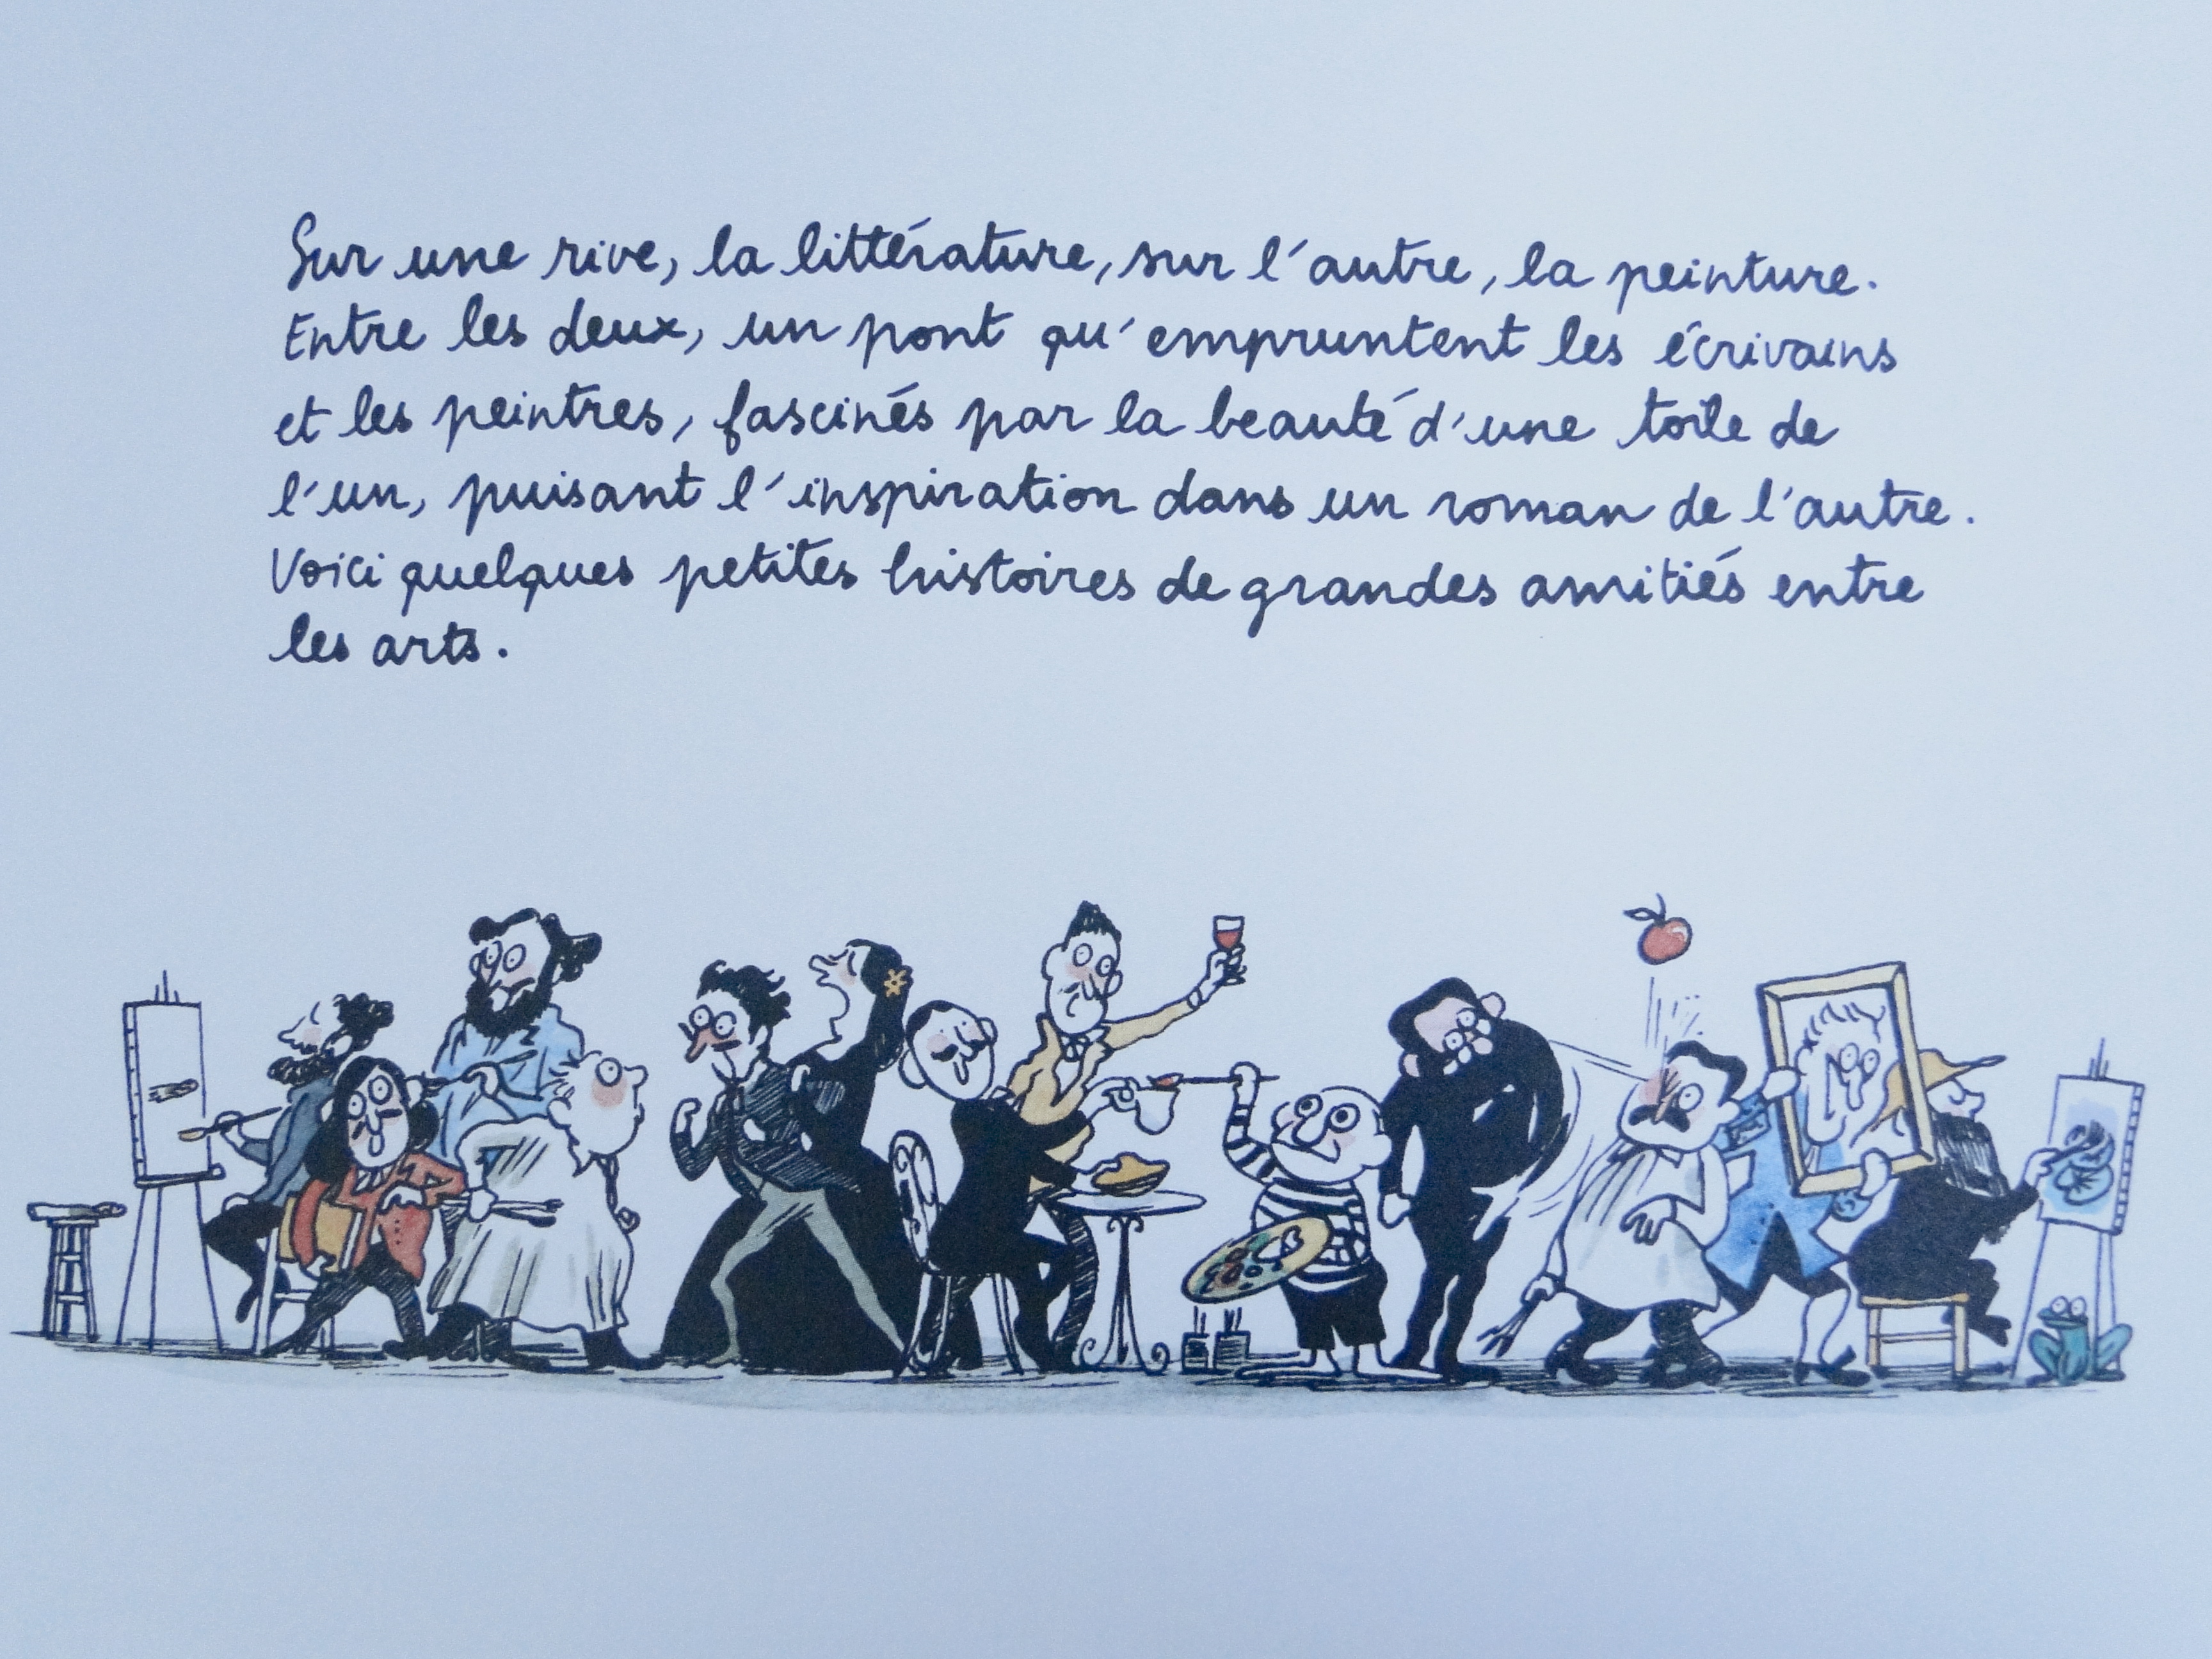 Sur une rive, la littérature, sur l'autre, la peinture.
Entre les deux, un pont qu'empruntent les écrivains
et les peintres, fascinés par la beauté d'une toile de
l'un, puisant l'inspiration dans un roman de l'autre.
Voici quelques petites histoires de grandes amitiés entre
les arts.